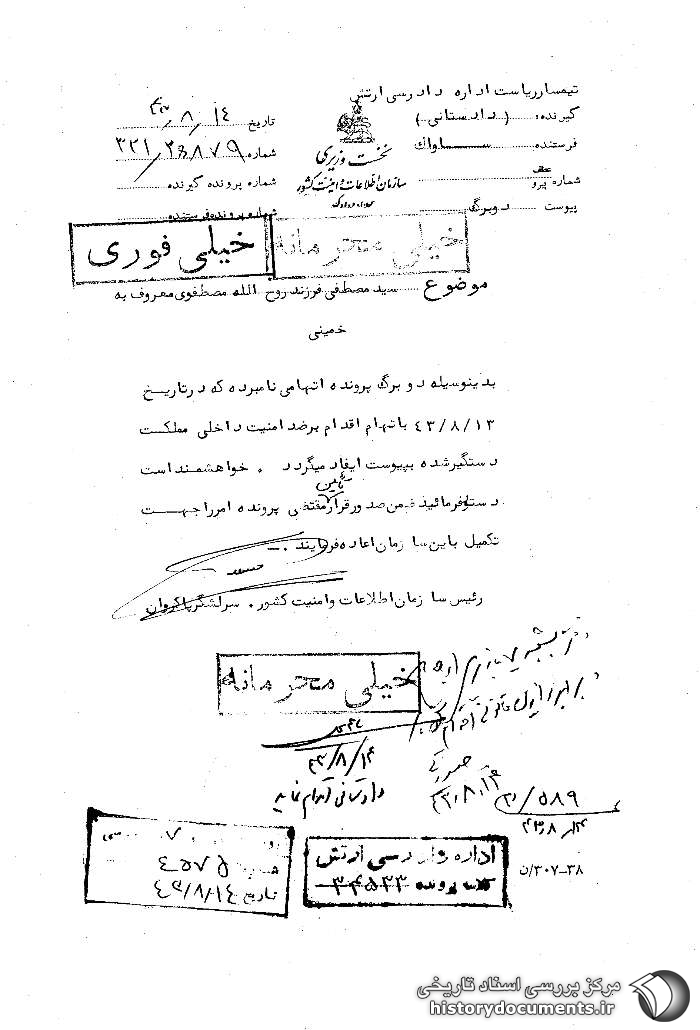 تیمسار ریاست اداره دادرسی ارتش
گیرنده: (دادستانی)
فرستنده ساواک
شماره پرو
پیوست دو برگ
نخست وزیری
سازمان اطلاعات و امنیت کشور
س.ا.و.ا.ک
تاریخ ۴۳/۸/۱۴
شماره ۳۲۱/۲۵۸۷۹
شماره پرونده گیرنده
شماره پرونده فرستنده
خیلی محرمانه
خیلی فوری
موضوع سید مصطفی فرزند روح الله مصطفوی معروف به
خمینی
بدینوسیله دو برگ پرونده اتهامی نامبرده که در تاریخ
۴۳/۸/۱۳ باتهام اقدام بر ضد امنیت داخلی مملکت
دستگیر شده بپیوست ایفاد میگردد . خواهشمند است
دستور فرمائید ضمن صدور قرار تأمین مقتضی پرونده امر را جهت
تکمیل باین سازمان اعاده فرمایند .
رئیس سازمان اطلاعات و امنیت کشور . سرلشگر پاکروان
خیلی محرمانه
۴۳/۸/۱۴
دادستانی اقدام نماید
۴۳/۸/۱۴
۲۰/۵۸۹
۴۳/۸/۱۴
۷
۴۵۷۵
تاریخ ۴۳/۸/۱۴
اداره دادرسی ارتش
کلاسه پرونده ۳۴۵۳۳
۳۸-۳۰۷/ن
مرکز بررسی اسناد تاریخی
historydocuments.ir